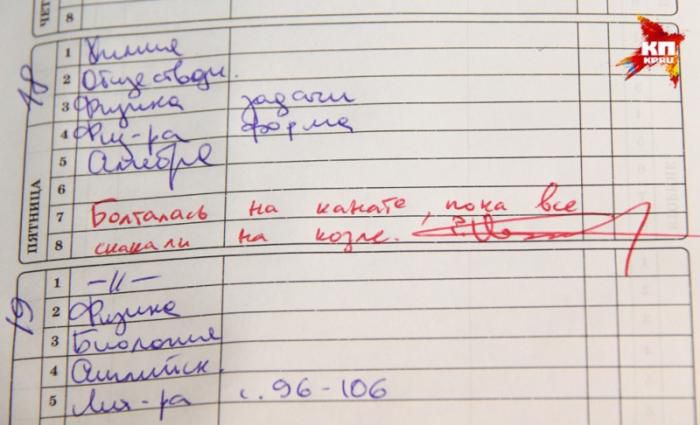 ЧЕТ
8
КП
КРЫМ
18
ПЯТНИЦА
1 Химия
2 Обществозн.
3 Физика задачи
4 Физ-ра форма
5 Алгебра
6
7 Болталась на канате, пока все
8 скакали на козле.
19
1 —//—
2 Физика
3 Биология
4 Английск.
5 Лит-ра с. 96-106